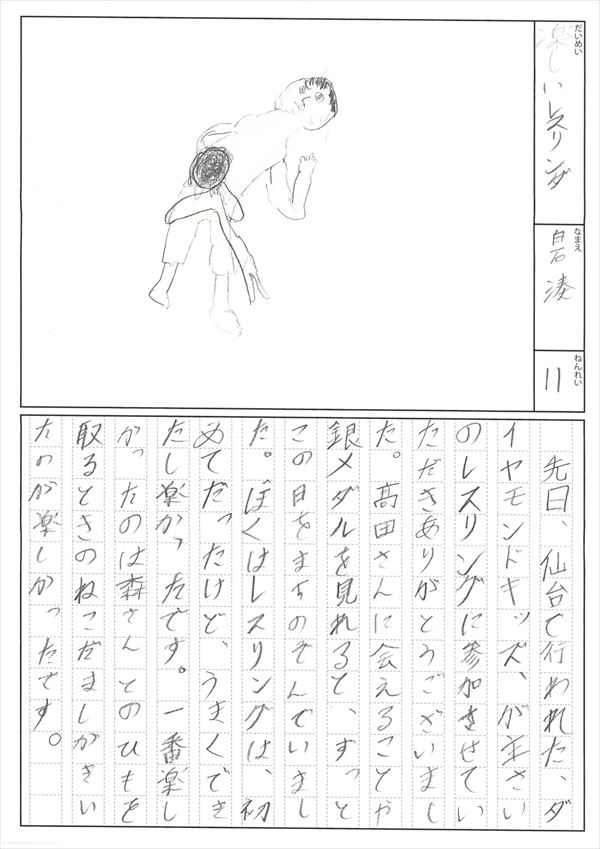 だいめい
楽しいレスリング
なまえ
岩湊
ねんれい
11
先日、仙台で行われた、ダ
イヤモンドキッズ、が主さい
のレスリングに参加させてい
ただきありがとうございまし
た。髙田さんに会えることや
銀メダルを見れると、すっと
この日をまちのぞんでいまし
た。ぼくはレスリングは、初
めてだったけど、うまくでき
たし楽かったです。一番楽し
かったのは森さんとのひもを
取るときのねこだましがきい
たのが楽しかったです。